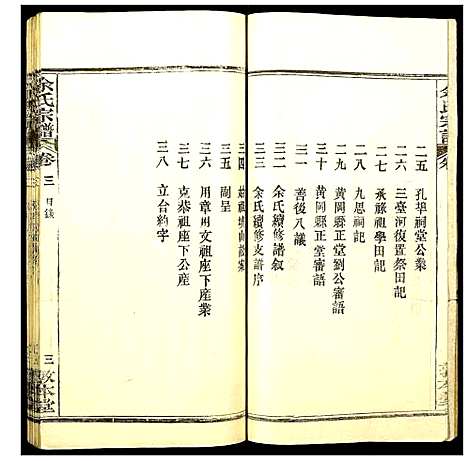 二五 孔埠祠堂公業
二六 三臺河復置祭田記
二七 承藤祖學田記
二八 九思祠記
二九 黃岡縣正堂劉公審語
三十 黃岡縣正堂審語
三一 善後八議
三二 余氏續修譜敘
三三 余氏續修支譜序
三四
三五 副呈
三六 用章用文祖座下產業
三七 克恭祖座下公產
三八 立合約字
余氏宗譜 卷三 目錄 三 敦本堂
余氏宗譜